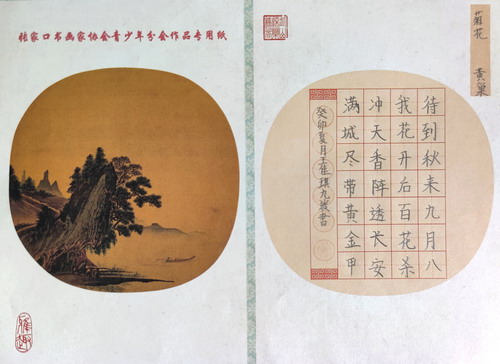 张家口书画家协会青少年分会作品专用纸
菊花 黄巢
待到秋来九月八
我花开后百花杀
冲天香阵透长安
满城尽带黄金甲
癸卯夏月王佳琪九岁书
雅趣